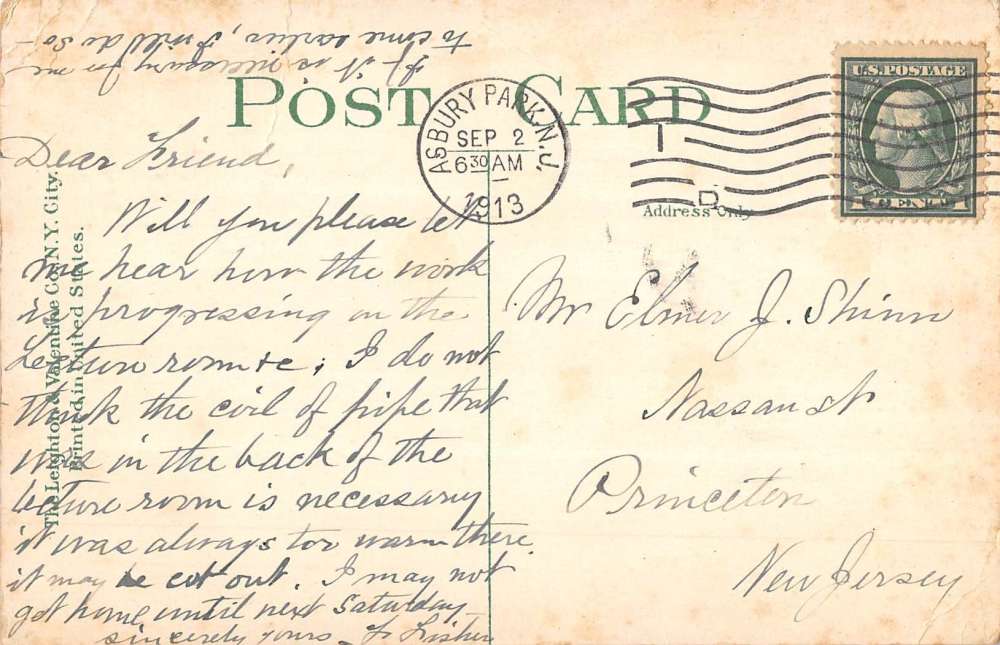 POST CARD
ASBURY PARK, N.J.
SEP 2
6 30 AM
1913
U.S. POSTAGE
1 CENT 1
T
D
Address Only
The Leighton & Valentine Co., N.Y. City.
Printed in United States.
Dear Friend,
Will you please let
me hear how the work
is progressing on the
Lecture room &c. I do not
think the coil of pipe that
was in the back of the
lecture room is necessary
it was always too warm there.
it may be cut out. I may not
get home until next Saturday
sincerely yours F. Fisher
If it is necessary for me
to come earlier, I will do so –
Mr Elmer J. Shinn
Nassau st
Princeton
New Jersey